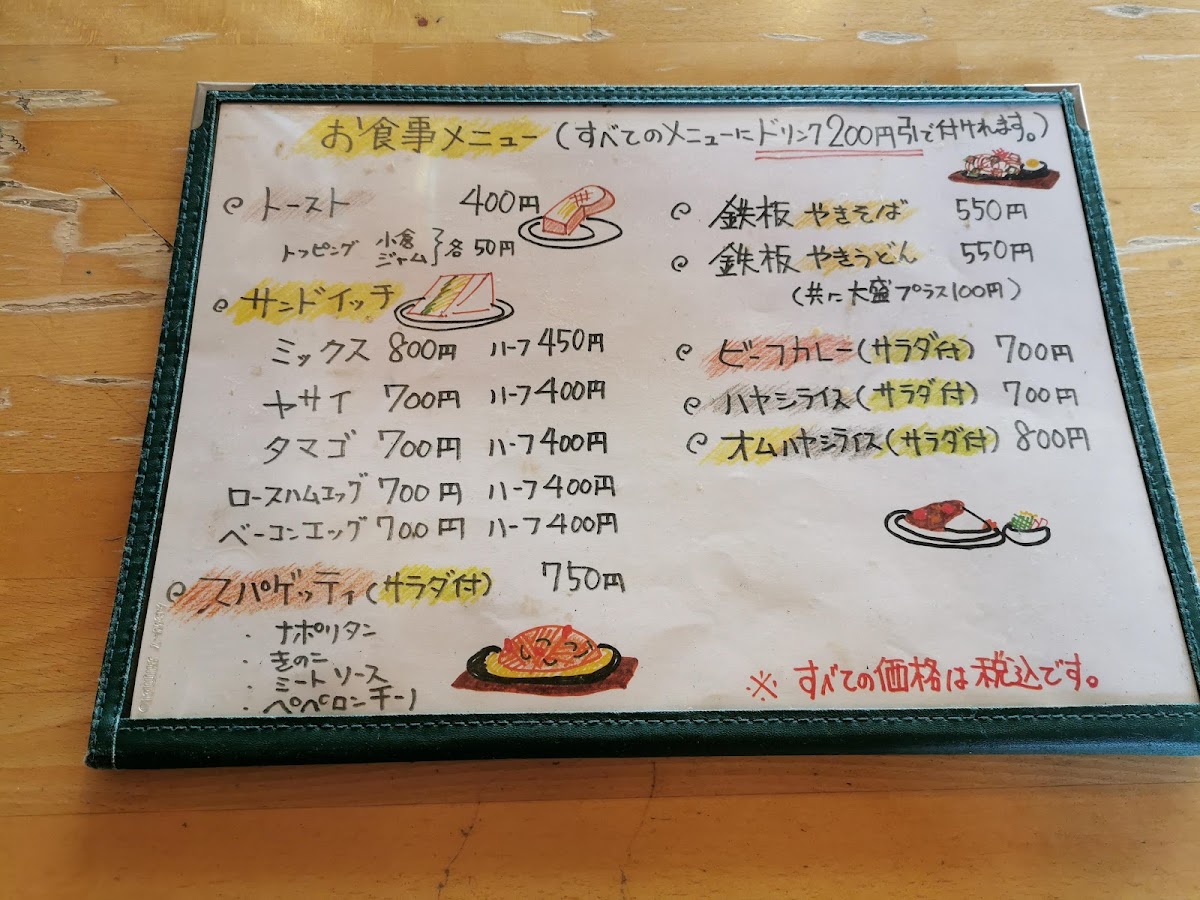 お食事メニュー(すべてのメニューにドリンク200円引で付けれます。)
トースト 400円
トッピング 小倉 ジャム}各50円
サンドイッチ
ミックス 800円 ハーフ 450円
ヤサイ 700円 ハーフ 400円
タマゴ 700円 ハーフ 400円
ロースハムエッグ 700円 ハーフ 400円
ベーコンエッグ 700円 ハーフ 400円
スパゲッティ(サラダ付) 750円
・ナポリタン
・きのこ
・ミートソース
・ペペロンチーノ
鉄板 やきそば 550円
鉄板 やきうどん 550円
(共に大盛プラス100円)
ビーフカレー(サラダ付) 700円
ハヤシライス(サラダ付) 700円
オムハヤシライス(サラダ付) 800円
※すべての価格は税込です。